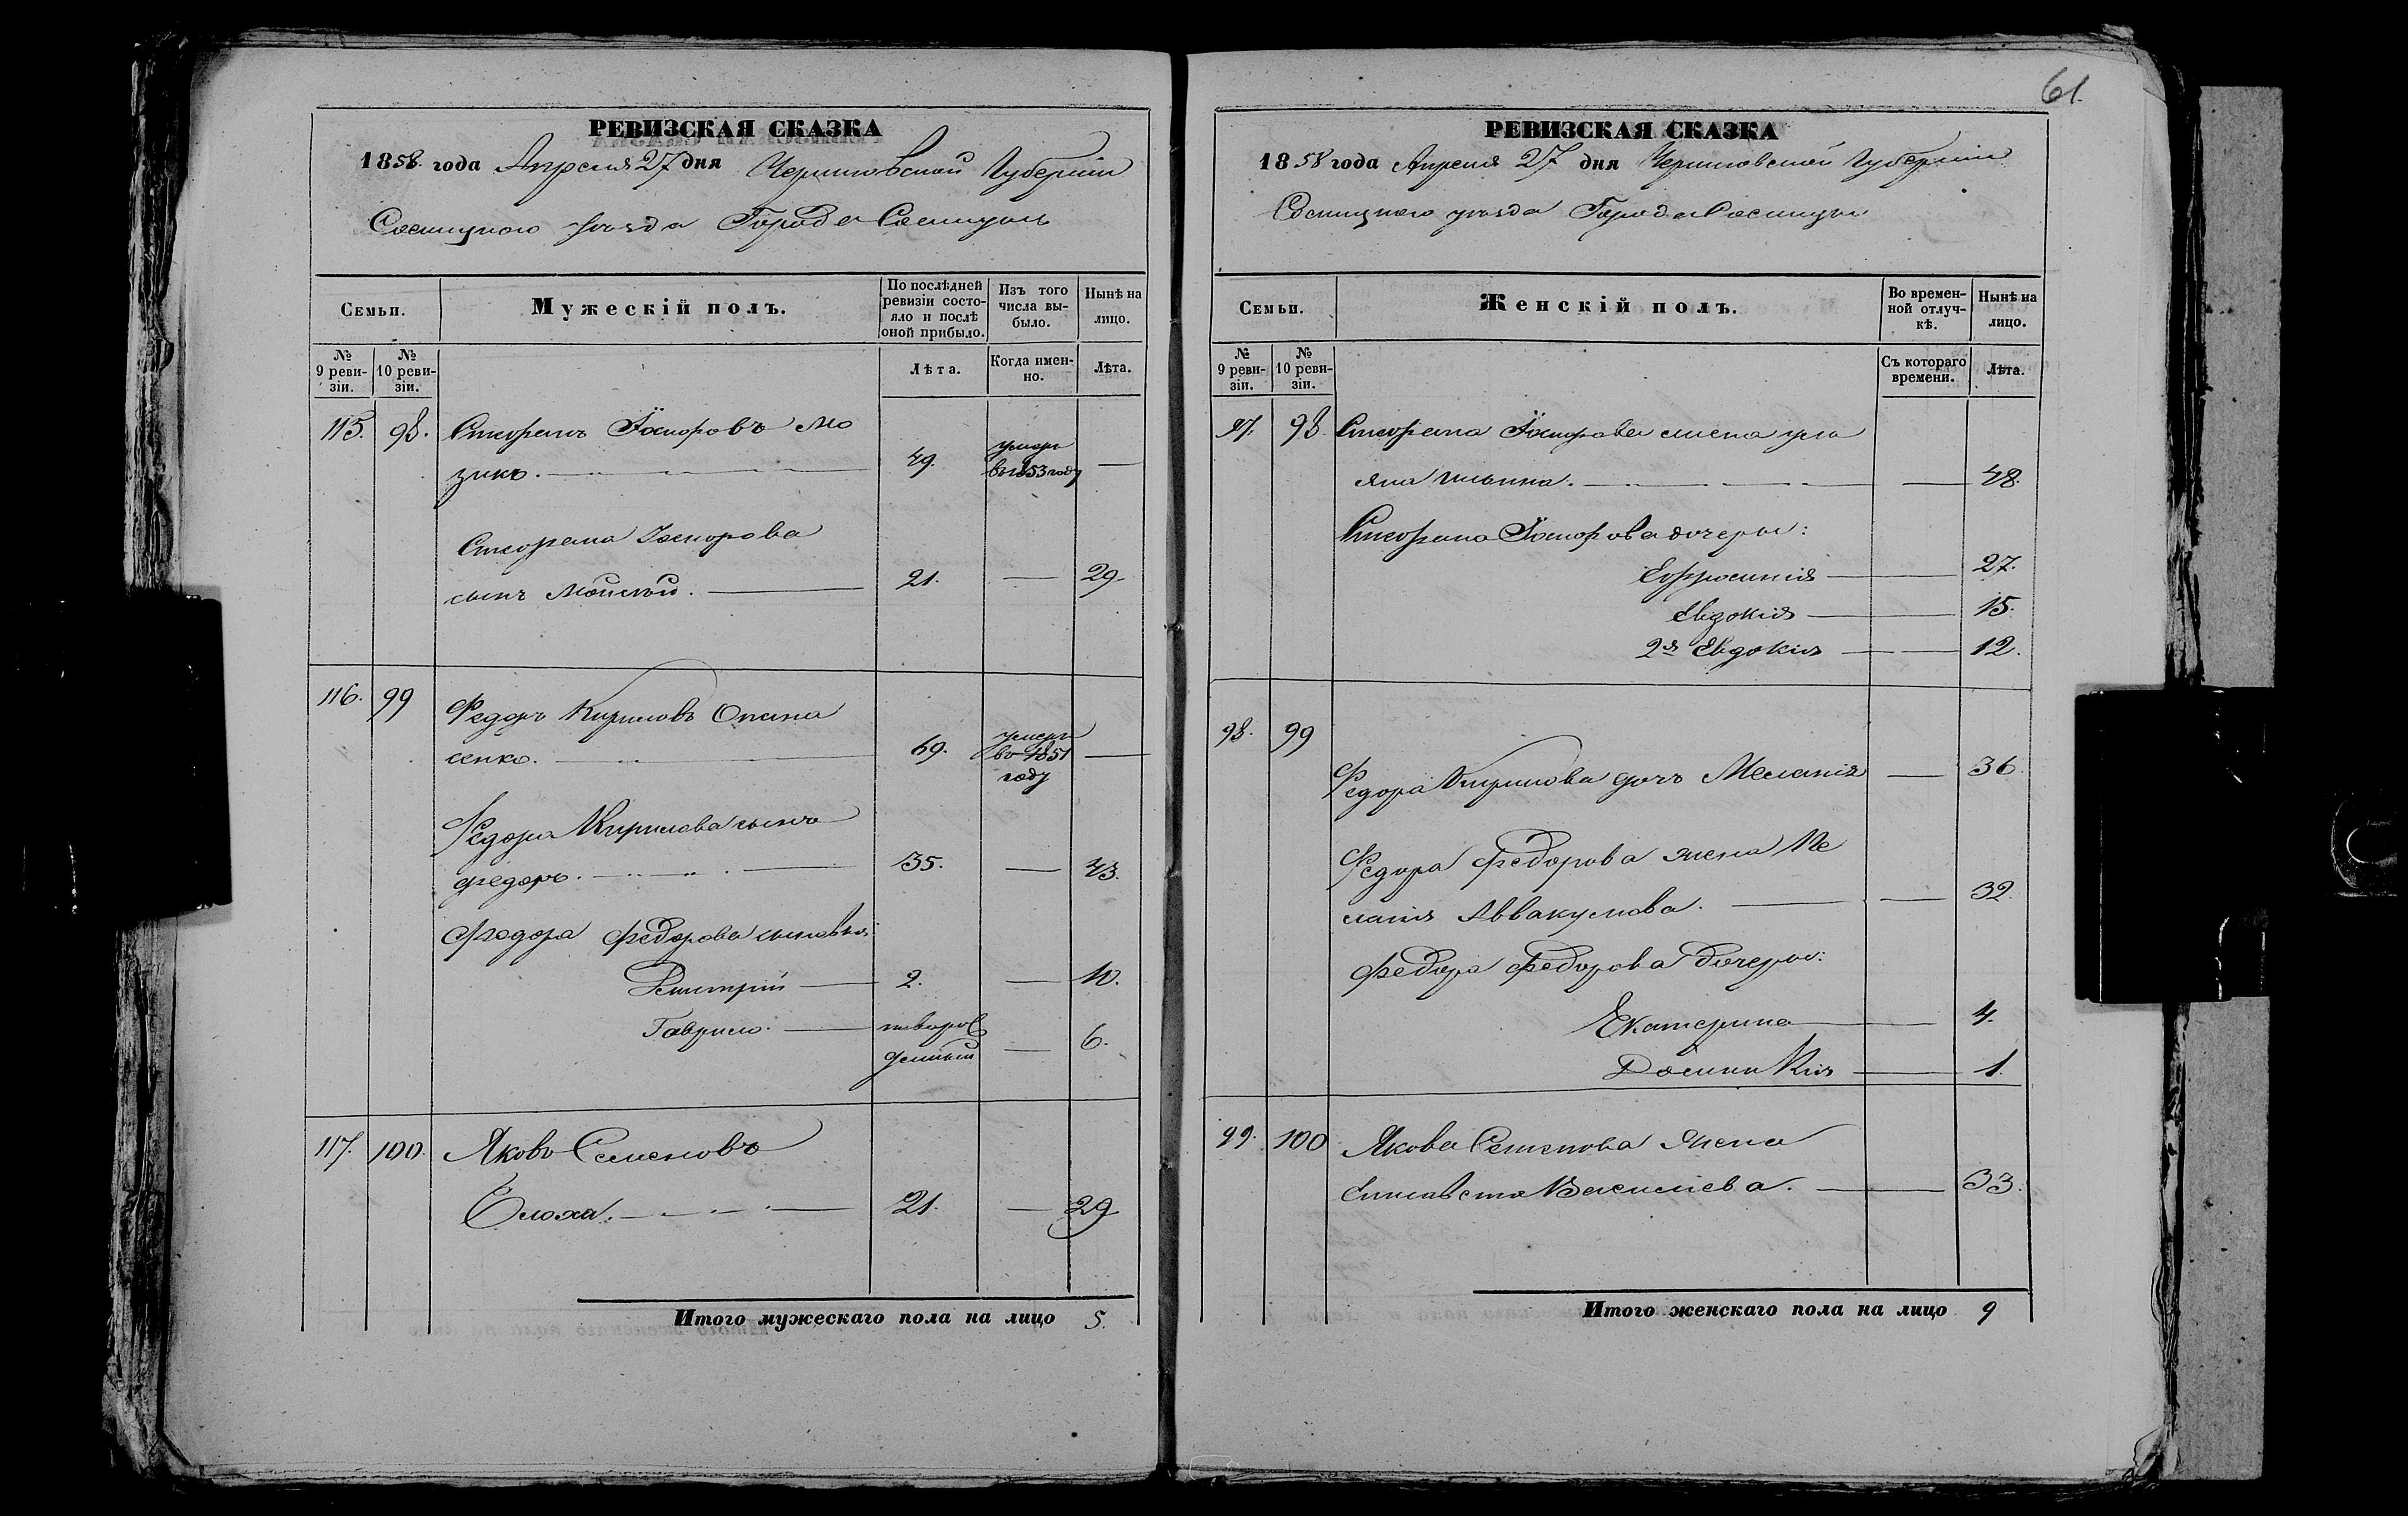 61.
РЕВИЗСКАЯ СКАЗКА
1858. года Апреля 27 дня Черниговской Губерніи
Сосницкого уезда Города Сосницы
Семьи.
Мужескій полъ.
По послѣдней ревизіи состояло и послѣ оной прибыло.
Изъ того числа выбыло.
Нынѣ на лицо.
№ 9 ревизіи.
№ 10 ревизіи.
Лѣта.
Когда именно.
Лѣта.
115. 98. Стефанъ Іосиповъ Мо
зико. 49. умеръ въ 1853 году —
Стефана Іосипова
сынъ Моисей. 21. — 29.
116. 99 Федоръ Кириловъ Опана
сенко. 69. умеръ во 1851 году —
Федора Кирилова сынъ
Федоръ. 35. — 43.
Федора Федорова сыновья:
Дмитрій — 2. — 10.
Гаврило. — новорож
денный — 6.
117. 100. Яковъ Семеновъ
21. — 29
Итого мужескаго пола на лицо 5.
РЕВИЗСКАЯ СКАЗКА
1858 года Апреля 27 дня Черниговской Губерніи
Сосницкого уезда Города Сосницы
Семьи.
Женскій полъ.
Во временной отлучкѣ.
Нынѣ на лицо.
№ 9 ревизіи.
№ 10 ревизіи.
Съ котораго времени.
Лѣта.
97. 98. Стефана Іосипова жена Улі
яна — 48.
Стефана Іосипова дочеры:
Ефросинія — 27.
Евдокия — 15.
2я Евдокия — 12.
98. 99
Федора Кирилова дочь Меланія — 36
Федора Федорова жена Ме
ланія Аввакумова. — 32.
Федора Федорова дочеры:
Екатерина — 4.
Домникія — 1.
99. 100 Якова Семенова жена
Елисавета Василіева. — 33.
Итого женскаго пола на лицо 9